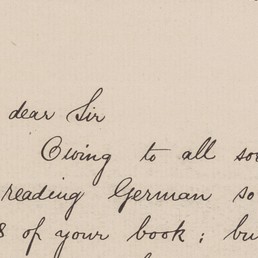 dear Sir
Owing to all
reading German so
8 of your book; bu